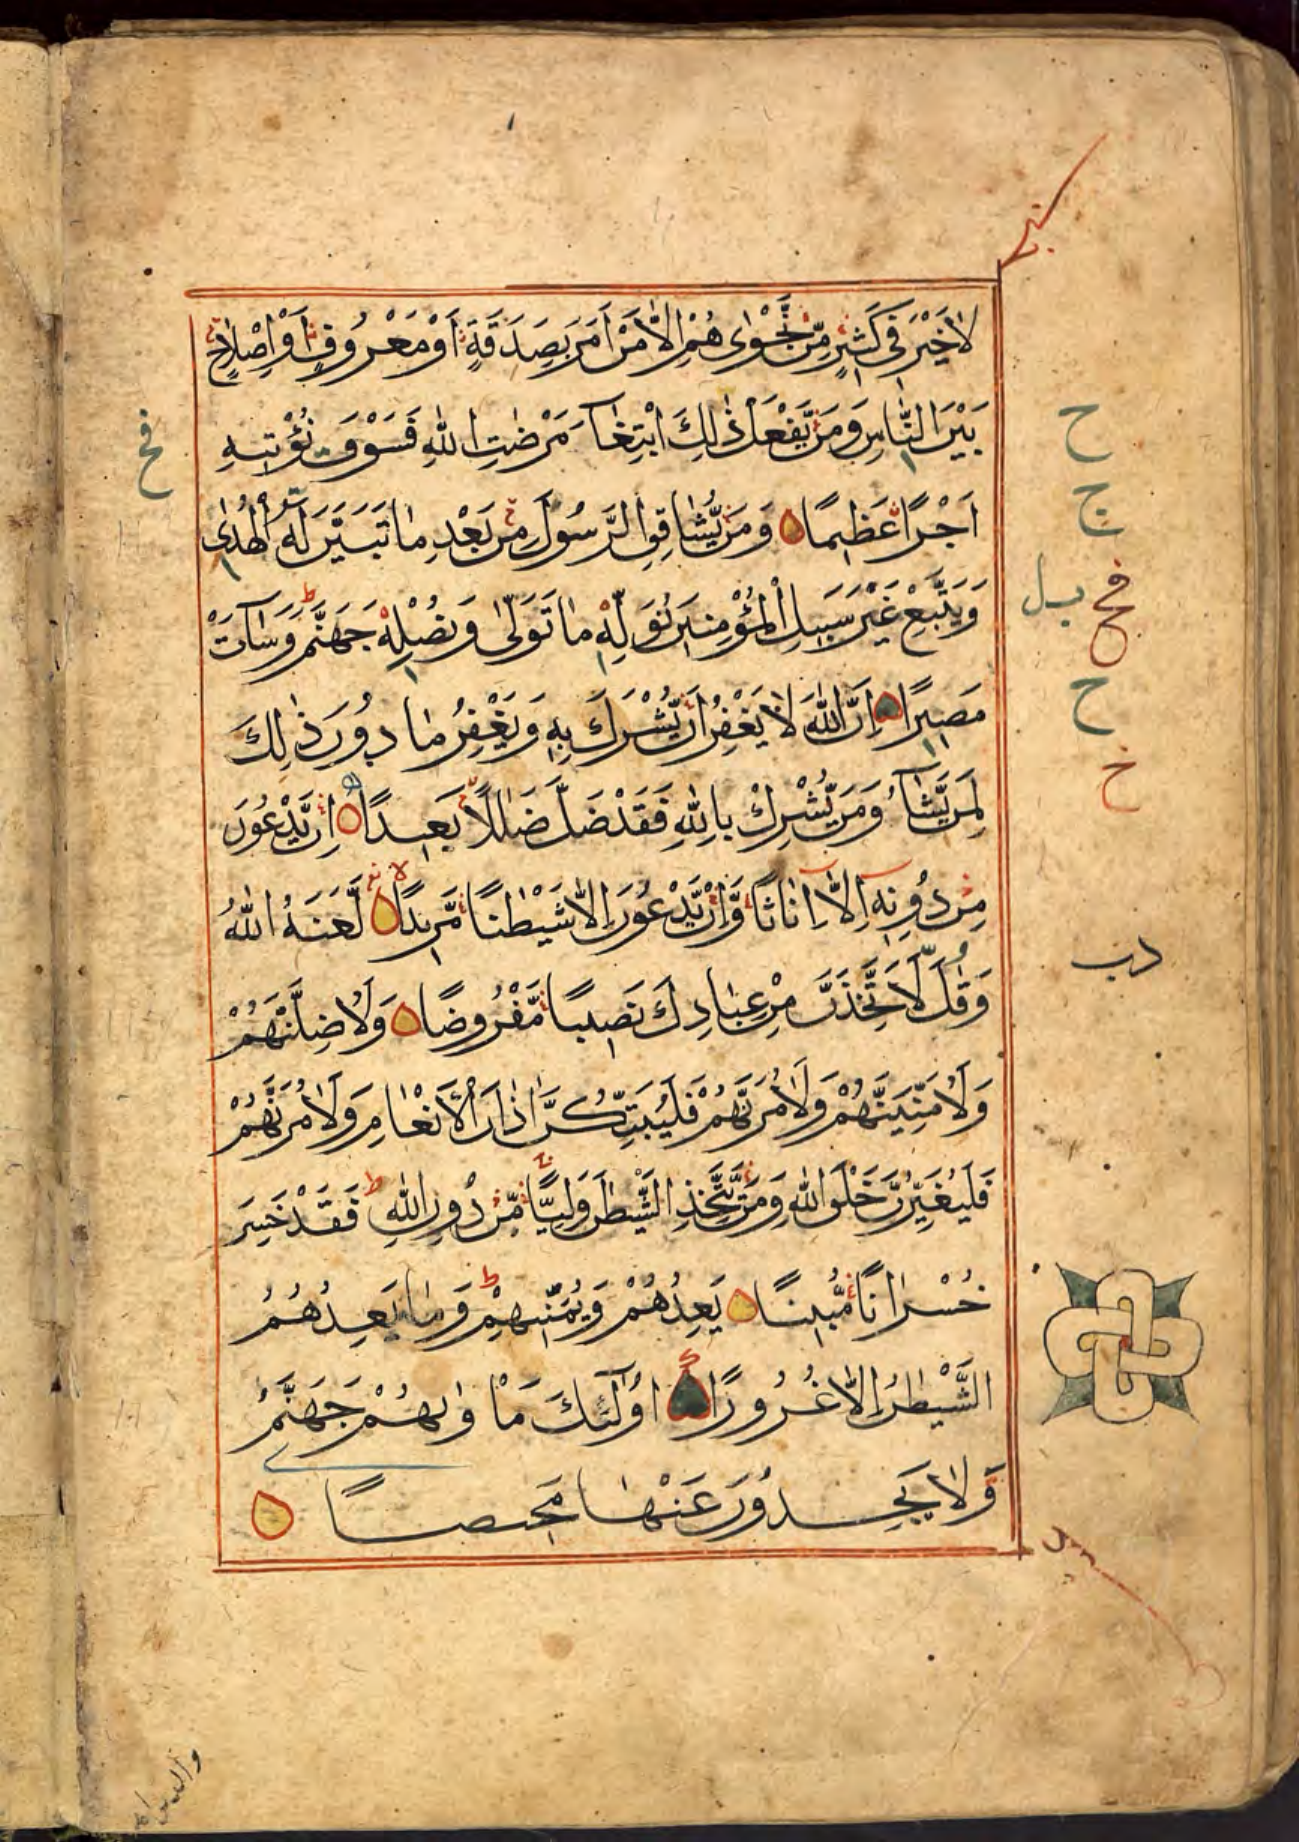 لَاخَيْرَ فِي كَثِيرٍ مِّنْ نَّجْوٰىهُمْ اِلَّا مَنْ اَمَرَ بِصَدَقَةٍ اَوْ مَعْرُوفٍ اَوْ اِصْلَاحٍ
بَيْنَ النَّاسِ وَمَنْ يَّفْعَلْ ذٰلِكَ ابْتِغَآءَ مَرْضٰتِ اللّٰهِ فَسَوْفَ نُؤْتِيهِ
اَجْرًا عَظِيمًا وَمَنْ يُّشَاقِقِ الرَّسُولَ مِنْ بَعْدِ مَا تَبَيَّنَ لَهُ الْهُدٰى
وَيَتَّبِعْ غَيْرَ سَبِيلِ الْمُؤْمِنِينَ نُوَلِّهٖ مَا تَوَلّٰى وَنُصْلِهٖ جَهَنَّمَ ط وَسَآءَتْ
مَصِيرًا اِنَّ اللّٰهَ لَا يَغْفِرُ اَنْ يُّشْرَكَ بِهٖ وَيَغْفِرُ مَا دُونَ ذٰلِكَ
لِمَنْ يَّشَآءُ وَمَنْ يُّشْرِكْ بِاللّٰهِ فَقَدْ ضَلَّ ضَلٰلًا بَعِيدًا اِنْ يَّدْعُونَ
مِنْ دُونِهٖ اِلَّا اِنَاثًا وَّاِنْ يَّدْعُونَ اِلَّا شَيْطٰنًا مَّرِيدًا لَّعَنَهُ اللّٰهُ
وَقَالَ لَاَتَّخِذَنَّ مِنْ عِبَادِكَ نَصِيبًا مَّفْرُوضًا وَلَاُضِلَّنَّهُمْ
وَلَاُمَنِّيَنَّهُمْ وَلَاٰمُرَنَّهُمْ فَلَيُبَتِّكُنَّ اٰذَانَ الْاَنْعَامِ وَلَاٰمُرَنَّهُمْ
فَلَيُغَيِّرُنَّ خَلْقَ اللّٰهِ وَمَنْ يَّتَّخِذِ الشَّيْطٰنَ وَلِيًّا مِّنْ دُونِ اللّٰهِ ط فَقَدْ خَسِرَ
خُسْرَانًا مُّبِينًا يَعِدُهُمْ وَيُمَنِّيهِمْ ط وَمَا يَعِدُهُمُ
الشَّيْطٰنُ اِلَّا غُرُورًا اُولٰٓئِكَ مَاْوٰىهُمْ جَهَنَّمُ
وَلَا يَجِدُونَ عَنْهَا مَحِيصًا
فح
ح
ج
فح
ح
خ
دب